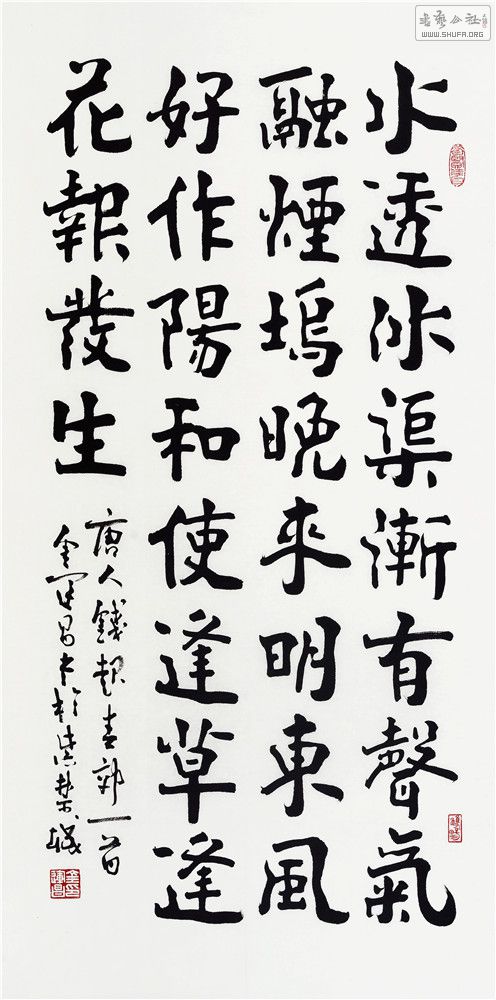 水透冰渠漸有聲氣
融煙塢晚來明東風
好作陽和使逢草逢
花報發生
唐人錢起春郊一首
金運昌書於紫禁城
金印
運昌
書艺公社
WWW.SHUFA.ORG